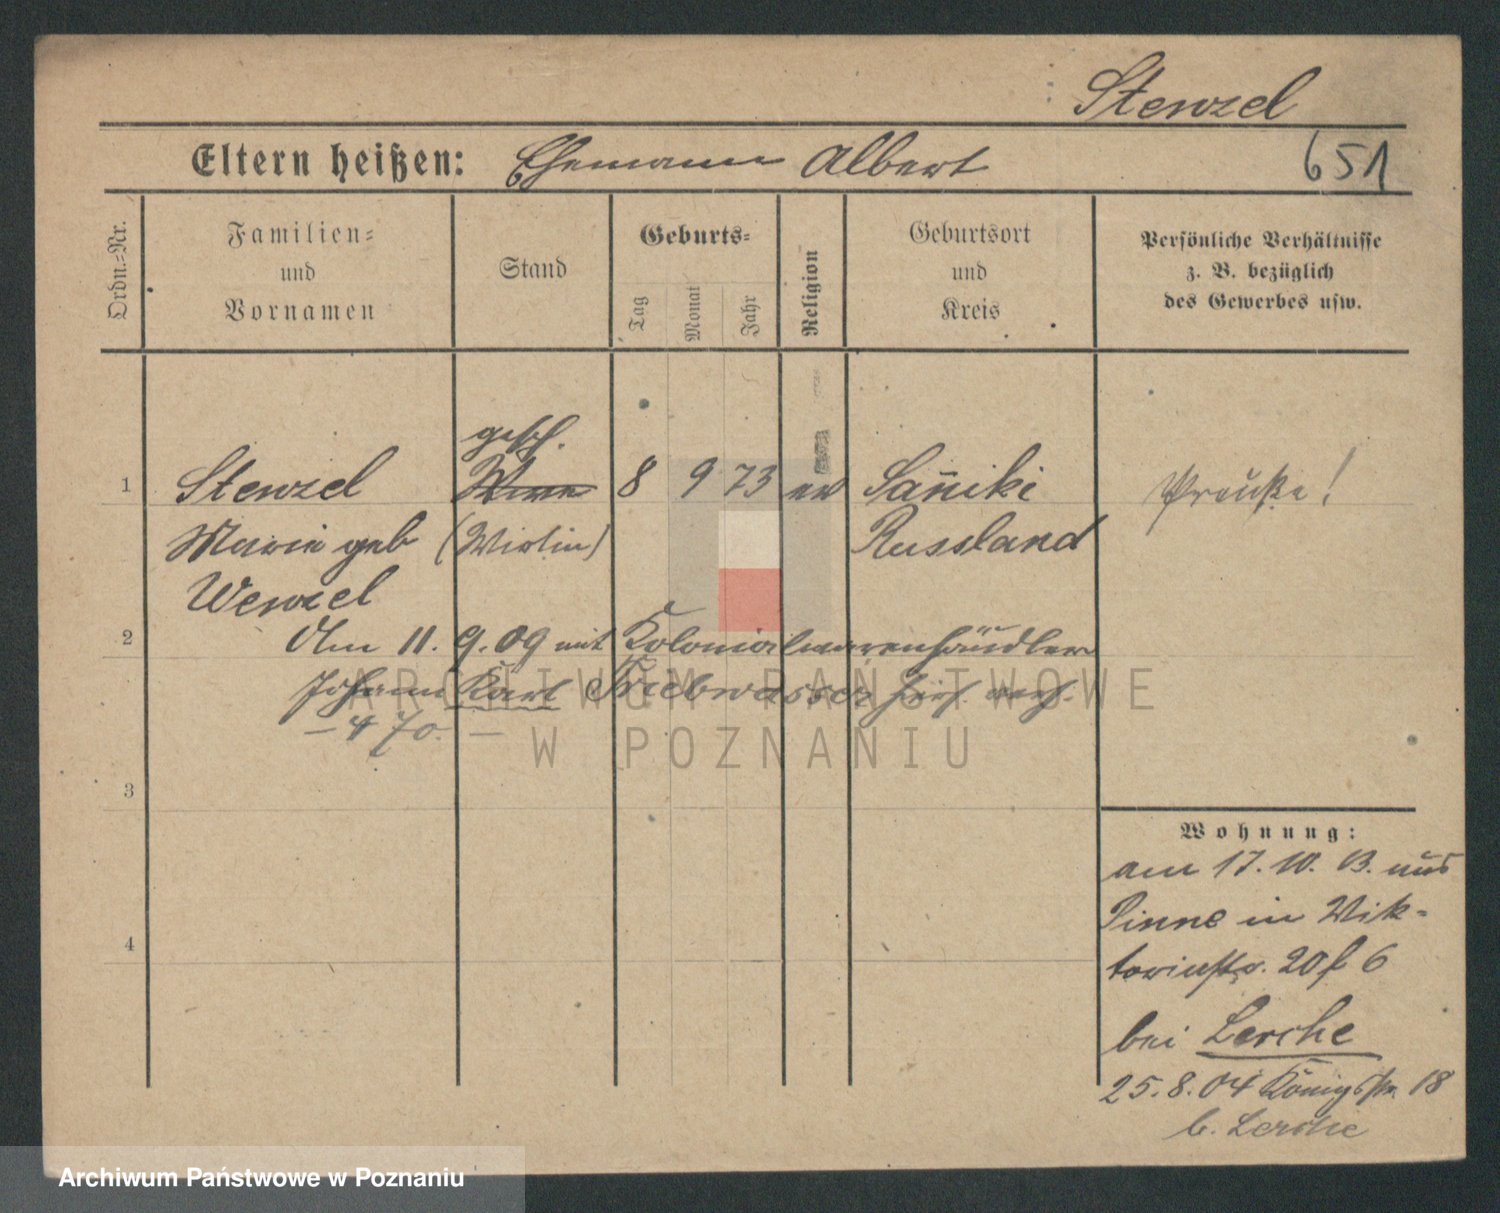 Stenzel
Eltern heißen: Ehemann Albert 651
Ordn.-Nr.
Familien-
und
Vornamen
Stand
Geburts-
Tag
Monat
Jahr
Religion
Geburtsort
und
Kreis
Persönliche Verhältnisse
z. B. bezüglich
des Gewerbes usw.
gesch.
1 Stenzel Wwe 8 9 73 ev Sañiki Preuße!
Marie geb (Wirtin) Russland
Wenzel
2 Am 11. 9. 09 mit Kolonialwarenhändler
Johann Karl Triebwasser hier verh.
– 470. –
ARCHIWUM PAŃSTWOWE
W POZNANIU
3
Wohnung:
am 17. 10. 03. aus
Pinne in Wik-
toriastr. 20 f 6
4
bei Lerche
25. 8. 04 Königstr. 18
b. Lerche
Archiwum Państwowe w Poznaniu